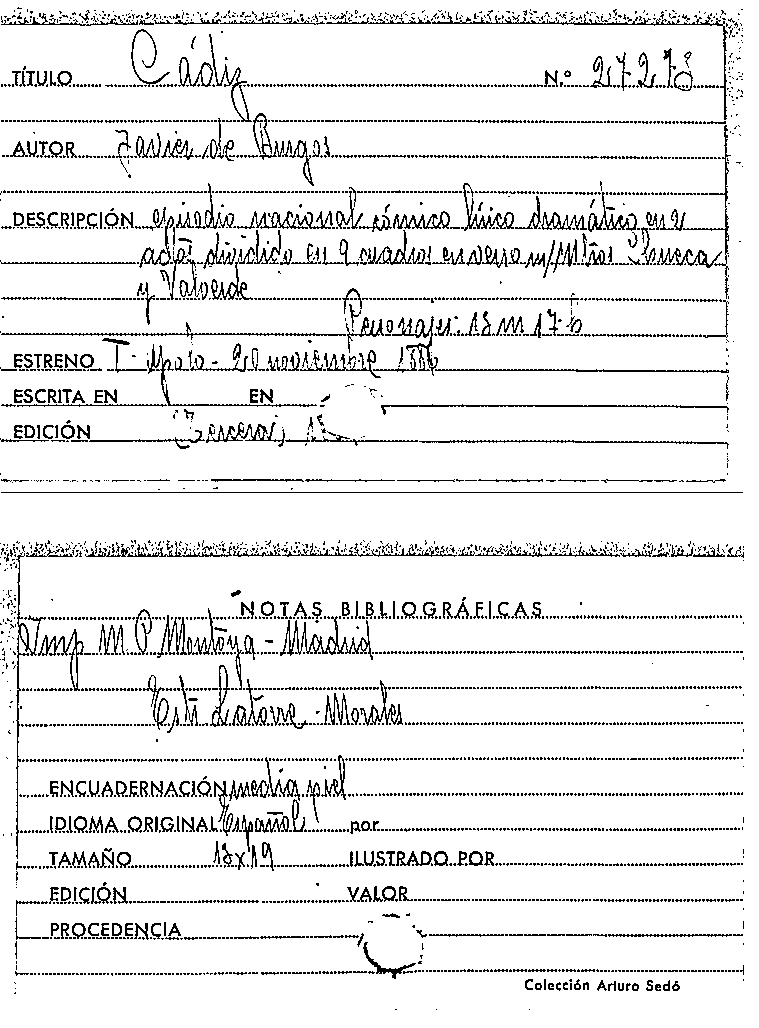 TÍTULO Cádiz N.º 27278
AUTOR Javier de Burgos
DESCRIPCIÓN episodio nacional cómico lírico dramático en 2
actos dividido en 9 cuadros en verso m/Mtros Chueca
y Valverde
Personajes: 18 m 17 h
ESTRENO T. Apolo - 20 noviembre 1886
ESCRITA EN EN
EDICIÓN Tercera,
NOTAS BIBLIOGRÁFICAS
Imp M P Montoya - Madrid
Latorre - Morales
ENCUADERNACIÓN media piel
IDIOMA ORIGINAL Español por
TAMAÑO 13x19 ILUSTRADO POR
EDICIÓN VALOR
PROCEDENCIA
Colección Arturo Sedó